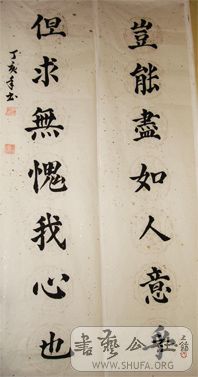 豈能盡如人意乎
但求無愧我心也
丁亥年书
書藝公社
WWW.SHUFA.ORG